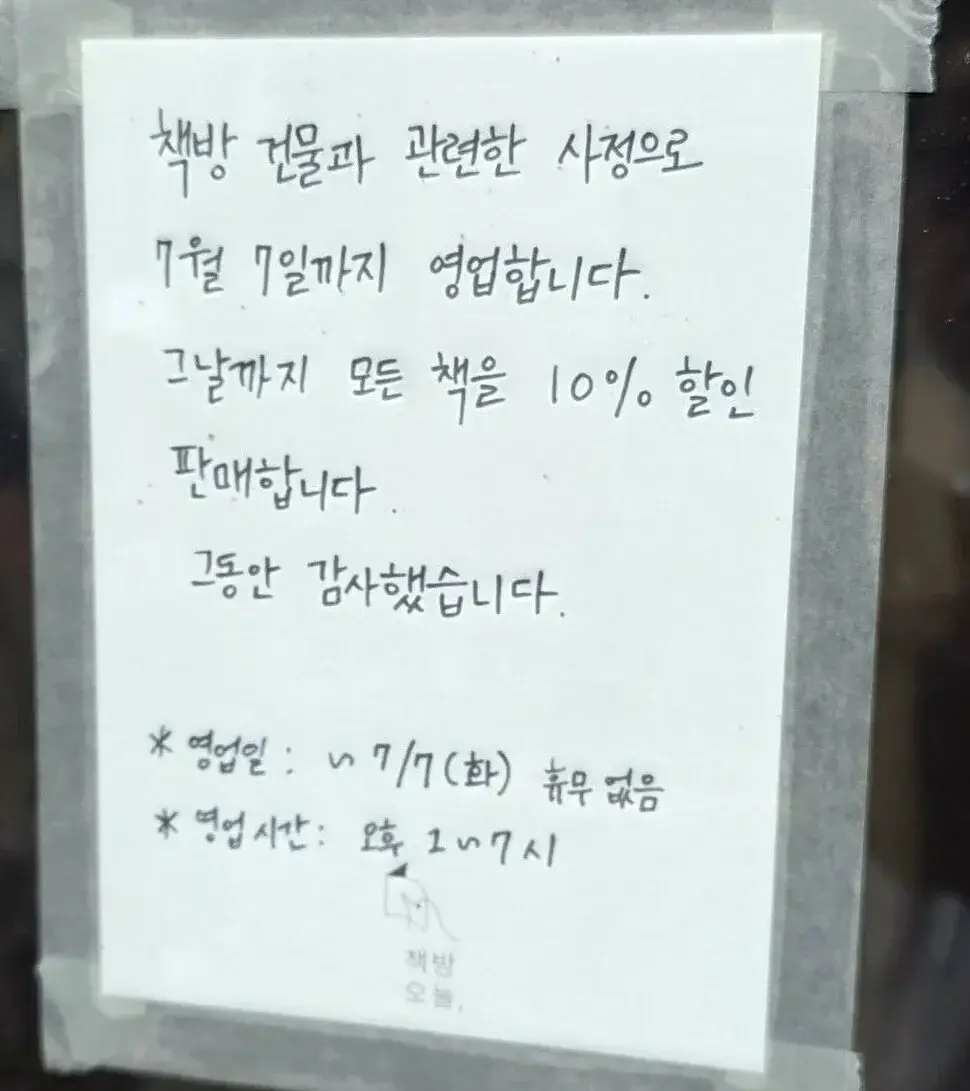 책방 건물과 관련한 사정으로
7월 7일까지 영업합니다.
그날까지 모든 책을 10% 할인
판매합니다.
그동안 감사했습니다.
* 영업일 : ~ 7/7 (화) 휴무 없음
* 영업 시간 : 오후 1~7시
책방
오늘,